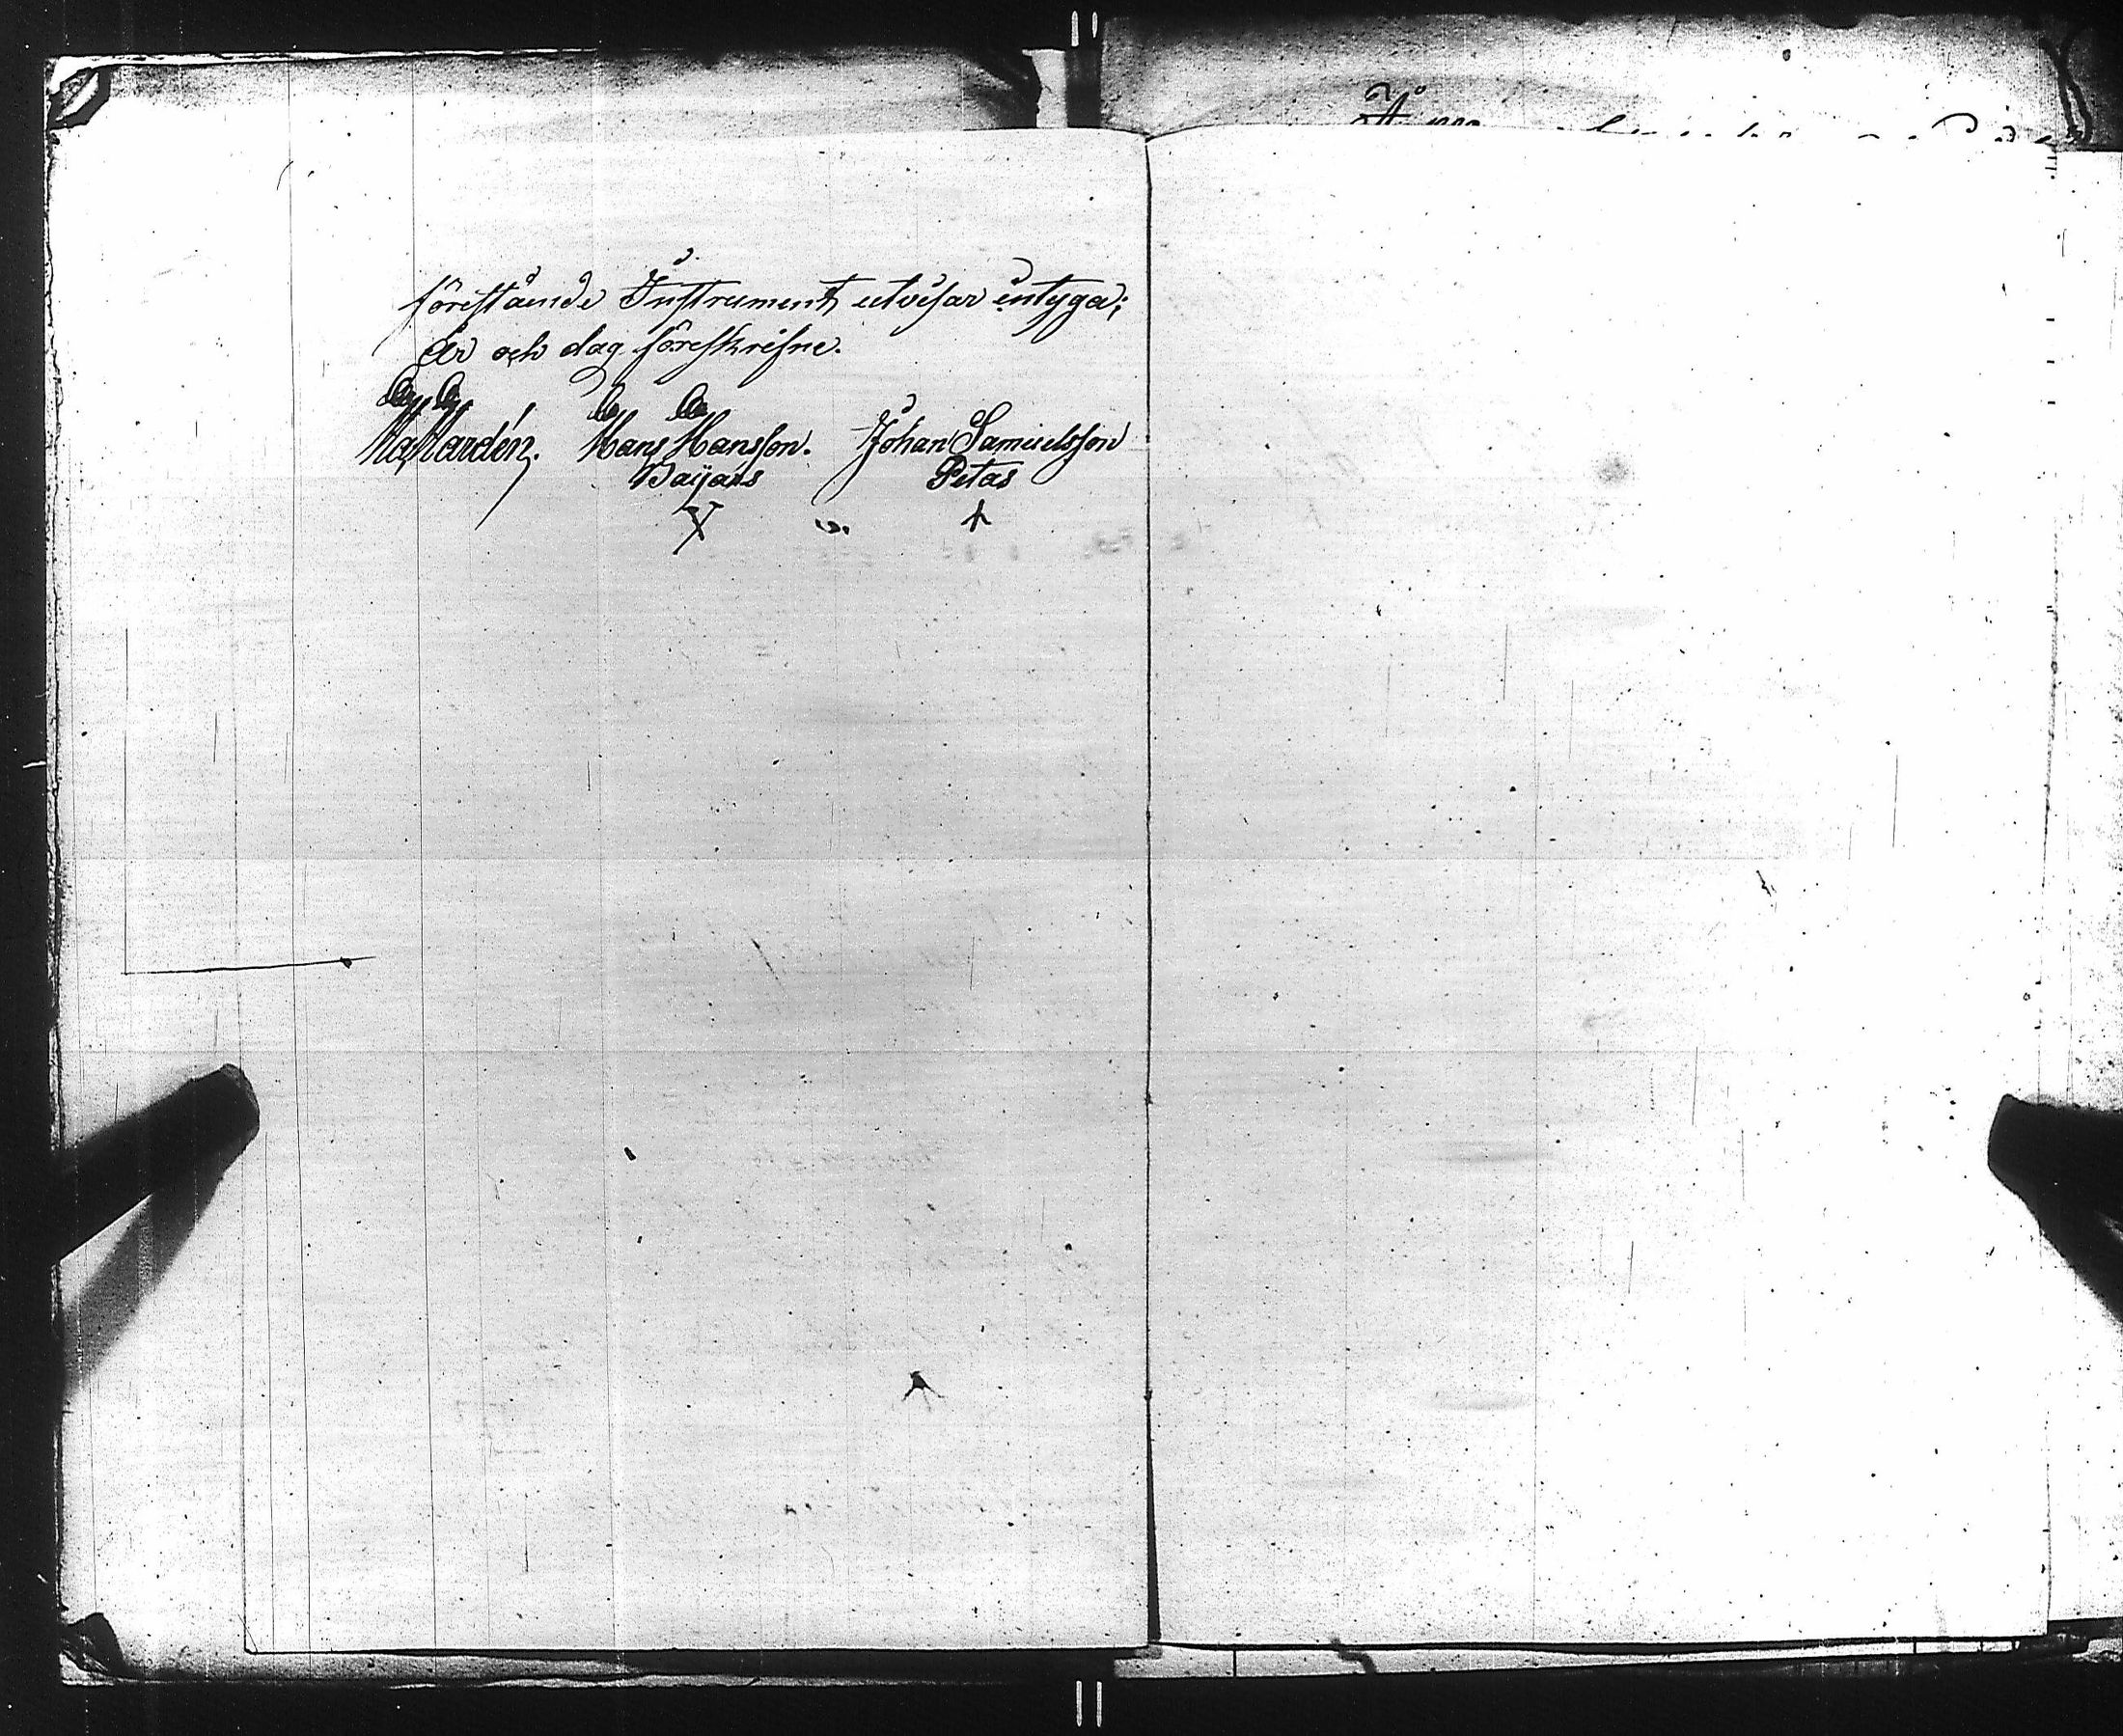 förestående Instrument utvisar intyga;
År och dag föreskrifne.
Hans Hansson. Johan Samuelsson
Bayars Petas
X